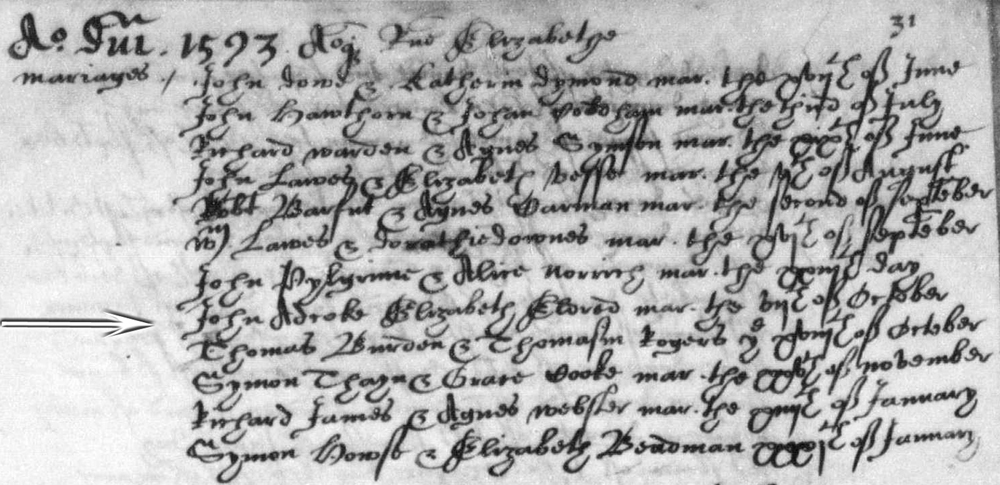 31
Ao Dm . 1593 . Aoq Rne Elizabethe
mariages / . John dowe & . Katherin dymond mar . the xviijth of June
John Hawthorn & Johan mar . the third of July
Richard warden & Agnes Symson mar . the xixth of June
John Lawes & Elizabeth mar . the vth of August
Robt Barfut & Agnes Carman mar . the second of September
Wm Lawes & dorathie downes mar . the xvijth of September
John Pylgrime & Alice norrich mar . the xxiiijth day
John Adcoke Elizabeth Elored mar . the vijth of October
Thomas Burden & Thomasin Rogers ye xviijth of October
Symon Thayn & Grace Cooke mar . the xxvth of november
Richard James & Agnes webster mar . the xiiijth of January
Symon Howse & Elizabeth Beadman xxxth of January